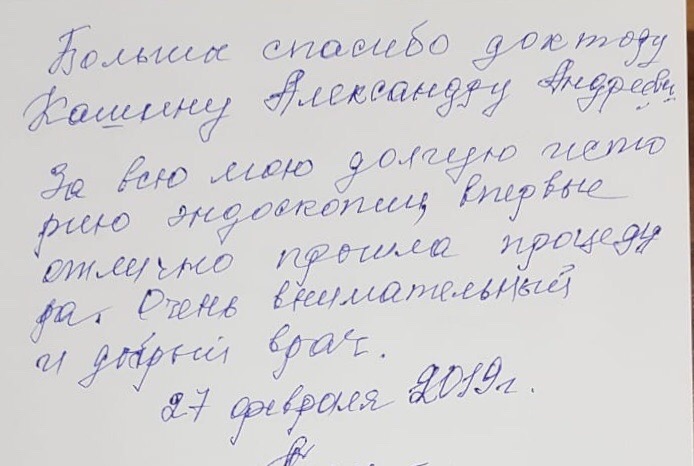 Большое спасибо доктору
Кашину Александру Андреевич
За всю мою долгую исто
рию эндоскопии, впервые
отлично прошла процеду
ра. Очень внимательный
и добрый врач.
27 февраля 2019г.